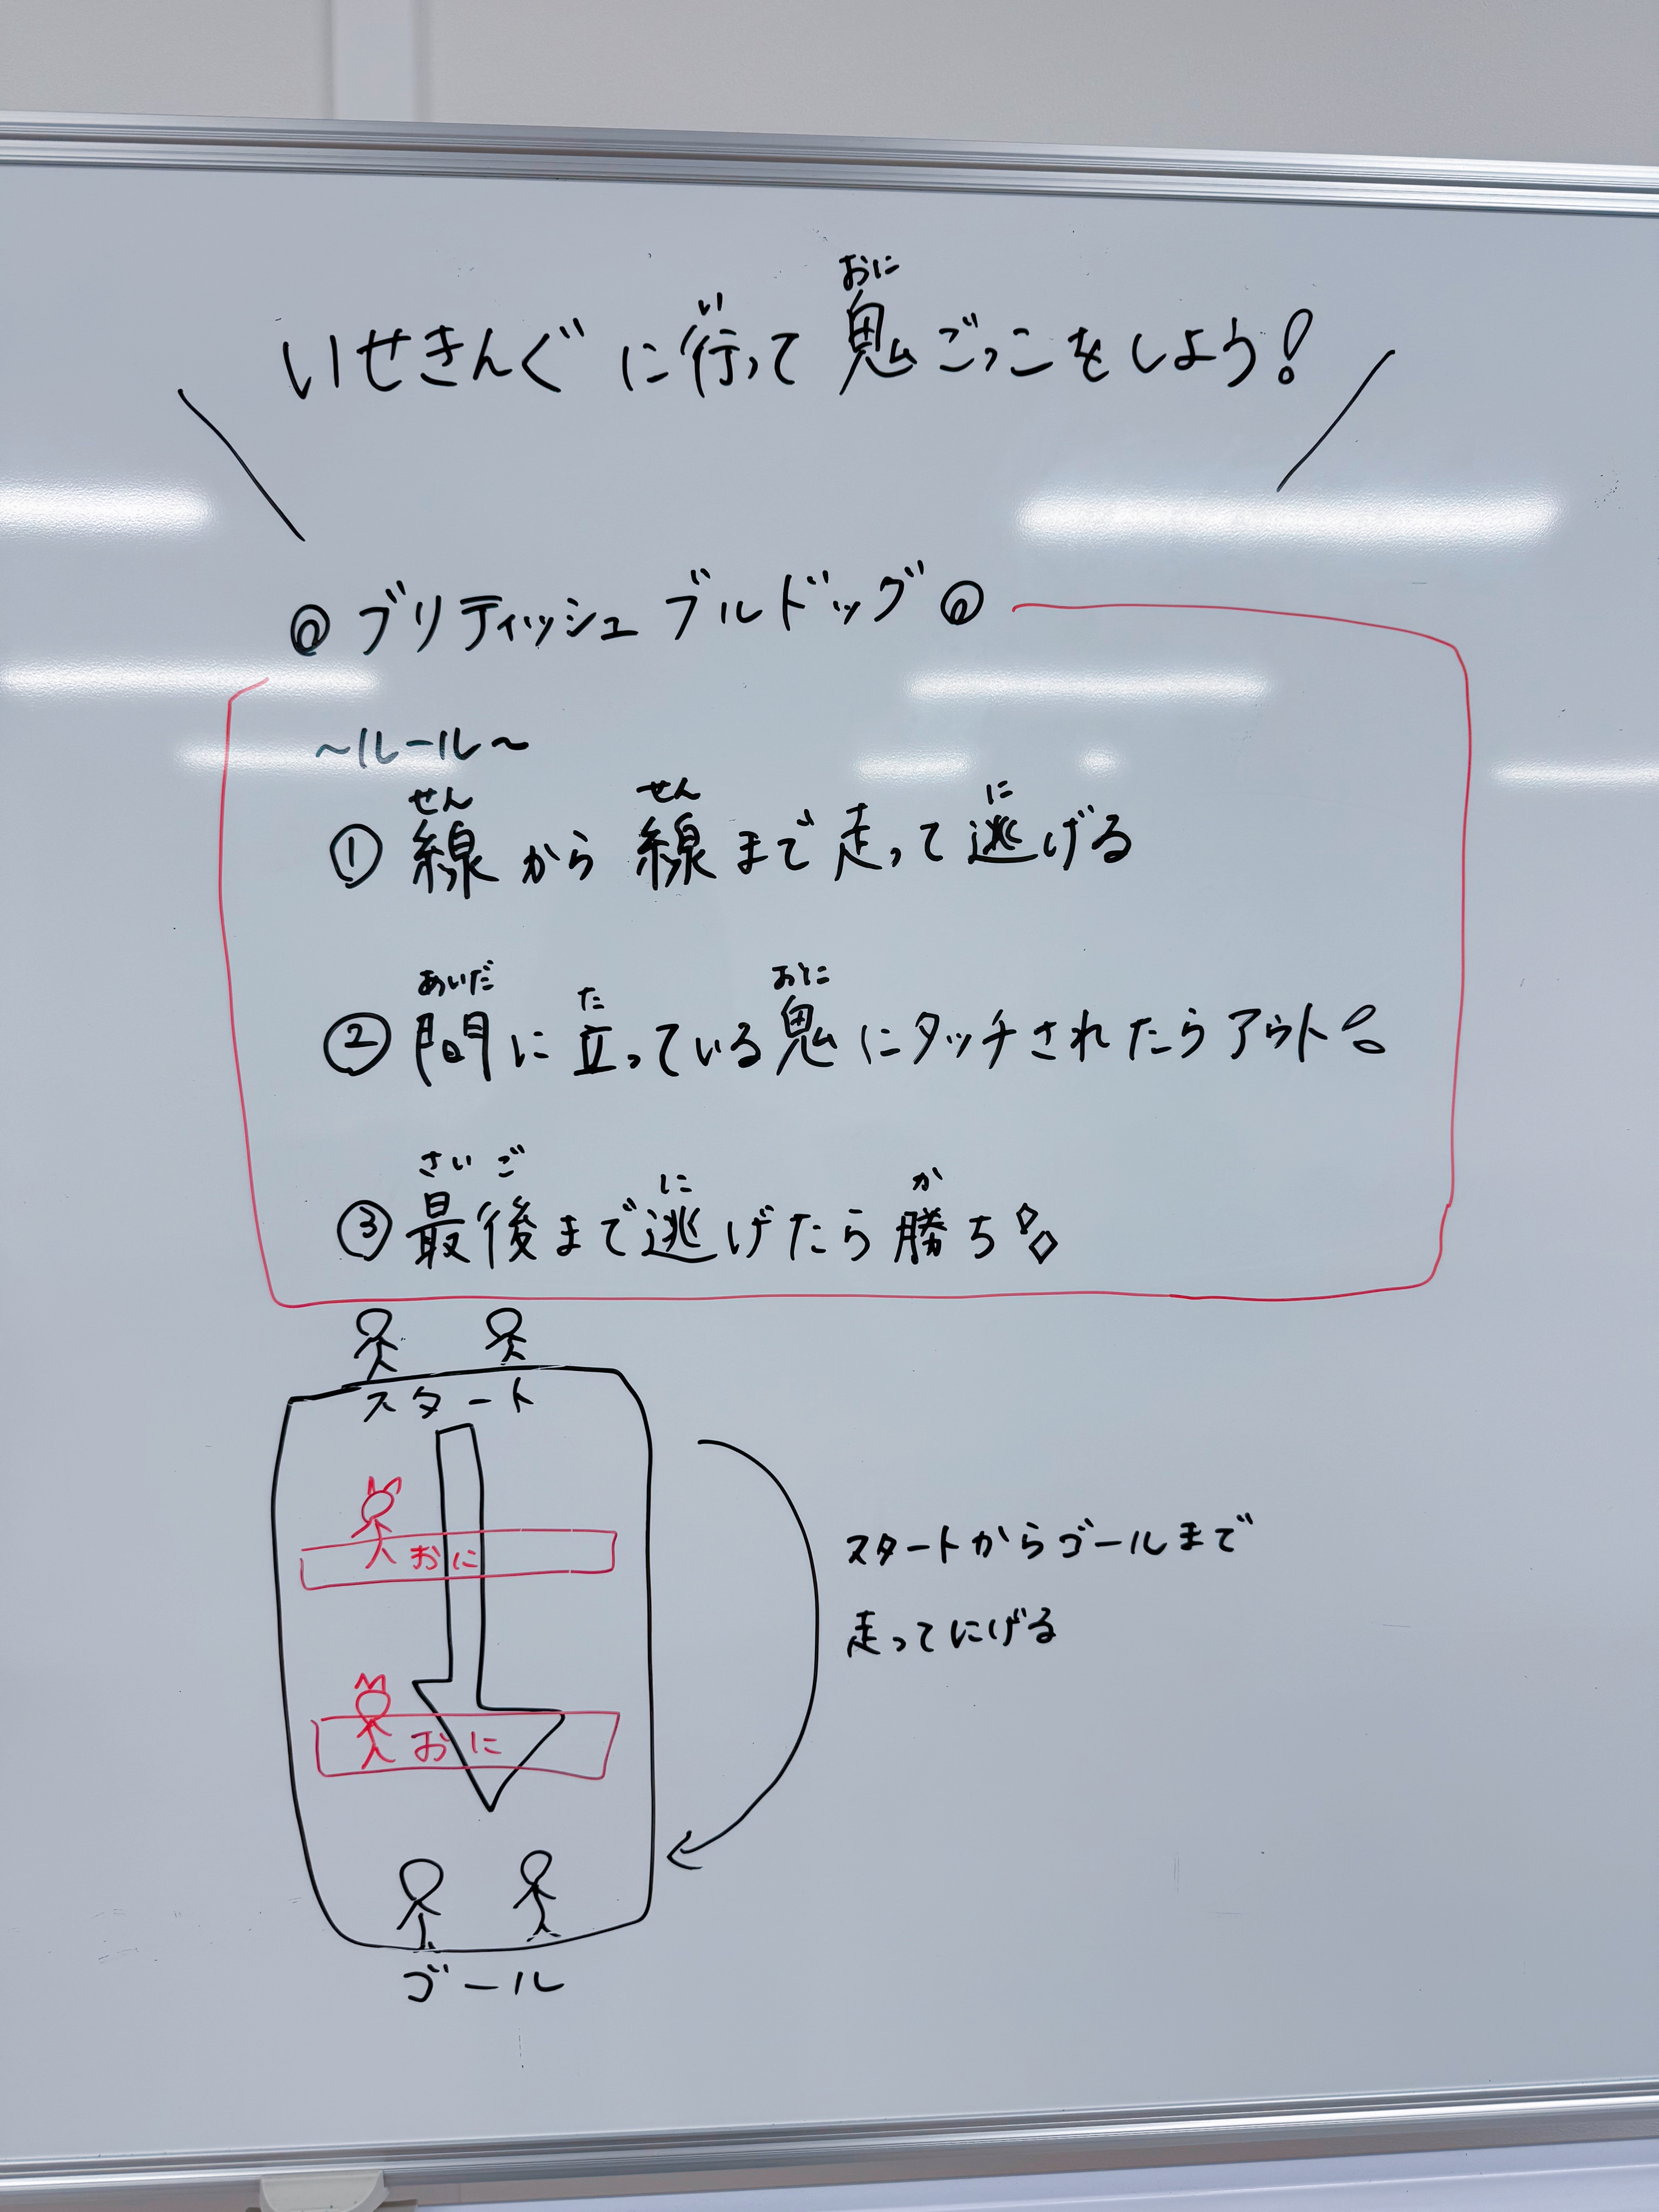 いせきんぐに行って鬼ごっこをしよう!
い おに
@ブリティッシュブルドッグ@
~ルール~
せん せん に
①線から線まで走って逃げる
あいだ た おに
②間に立っている鬼にタッチされたらアウト
さいご に か
③最後まで逃げたら勝ち
スタート
おに
おに
ゴール
スタートからゴールまで
走ってにげる